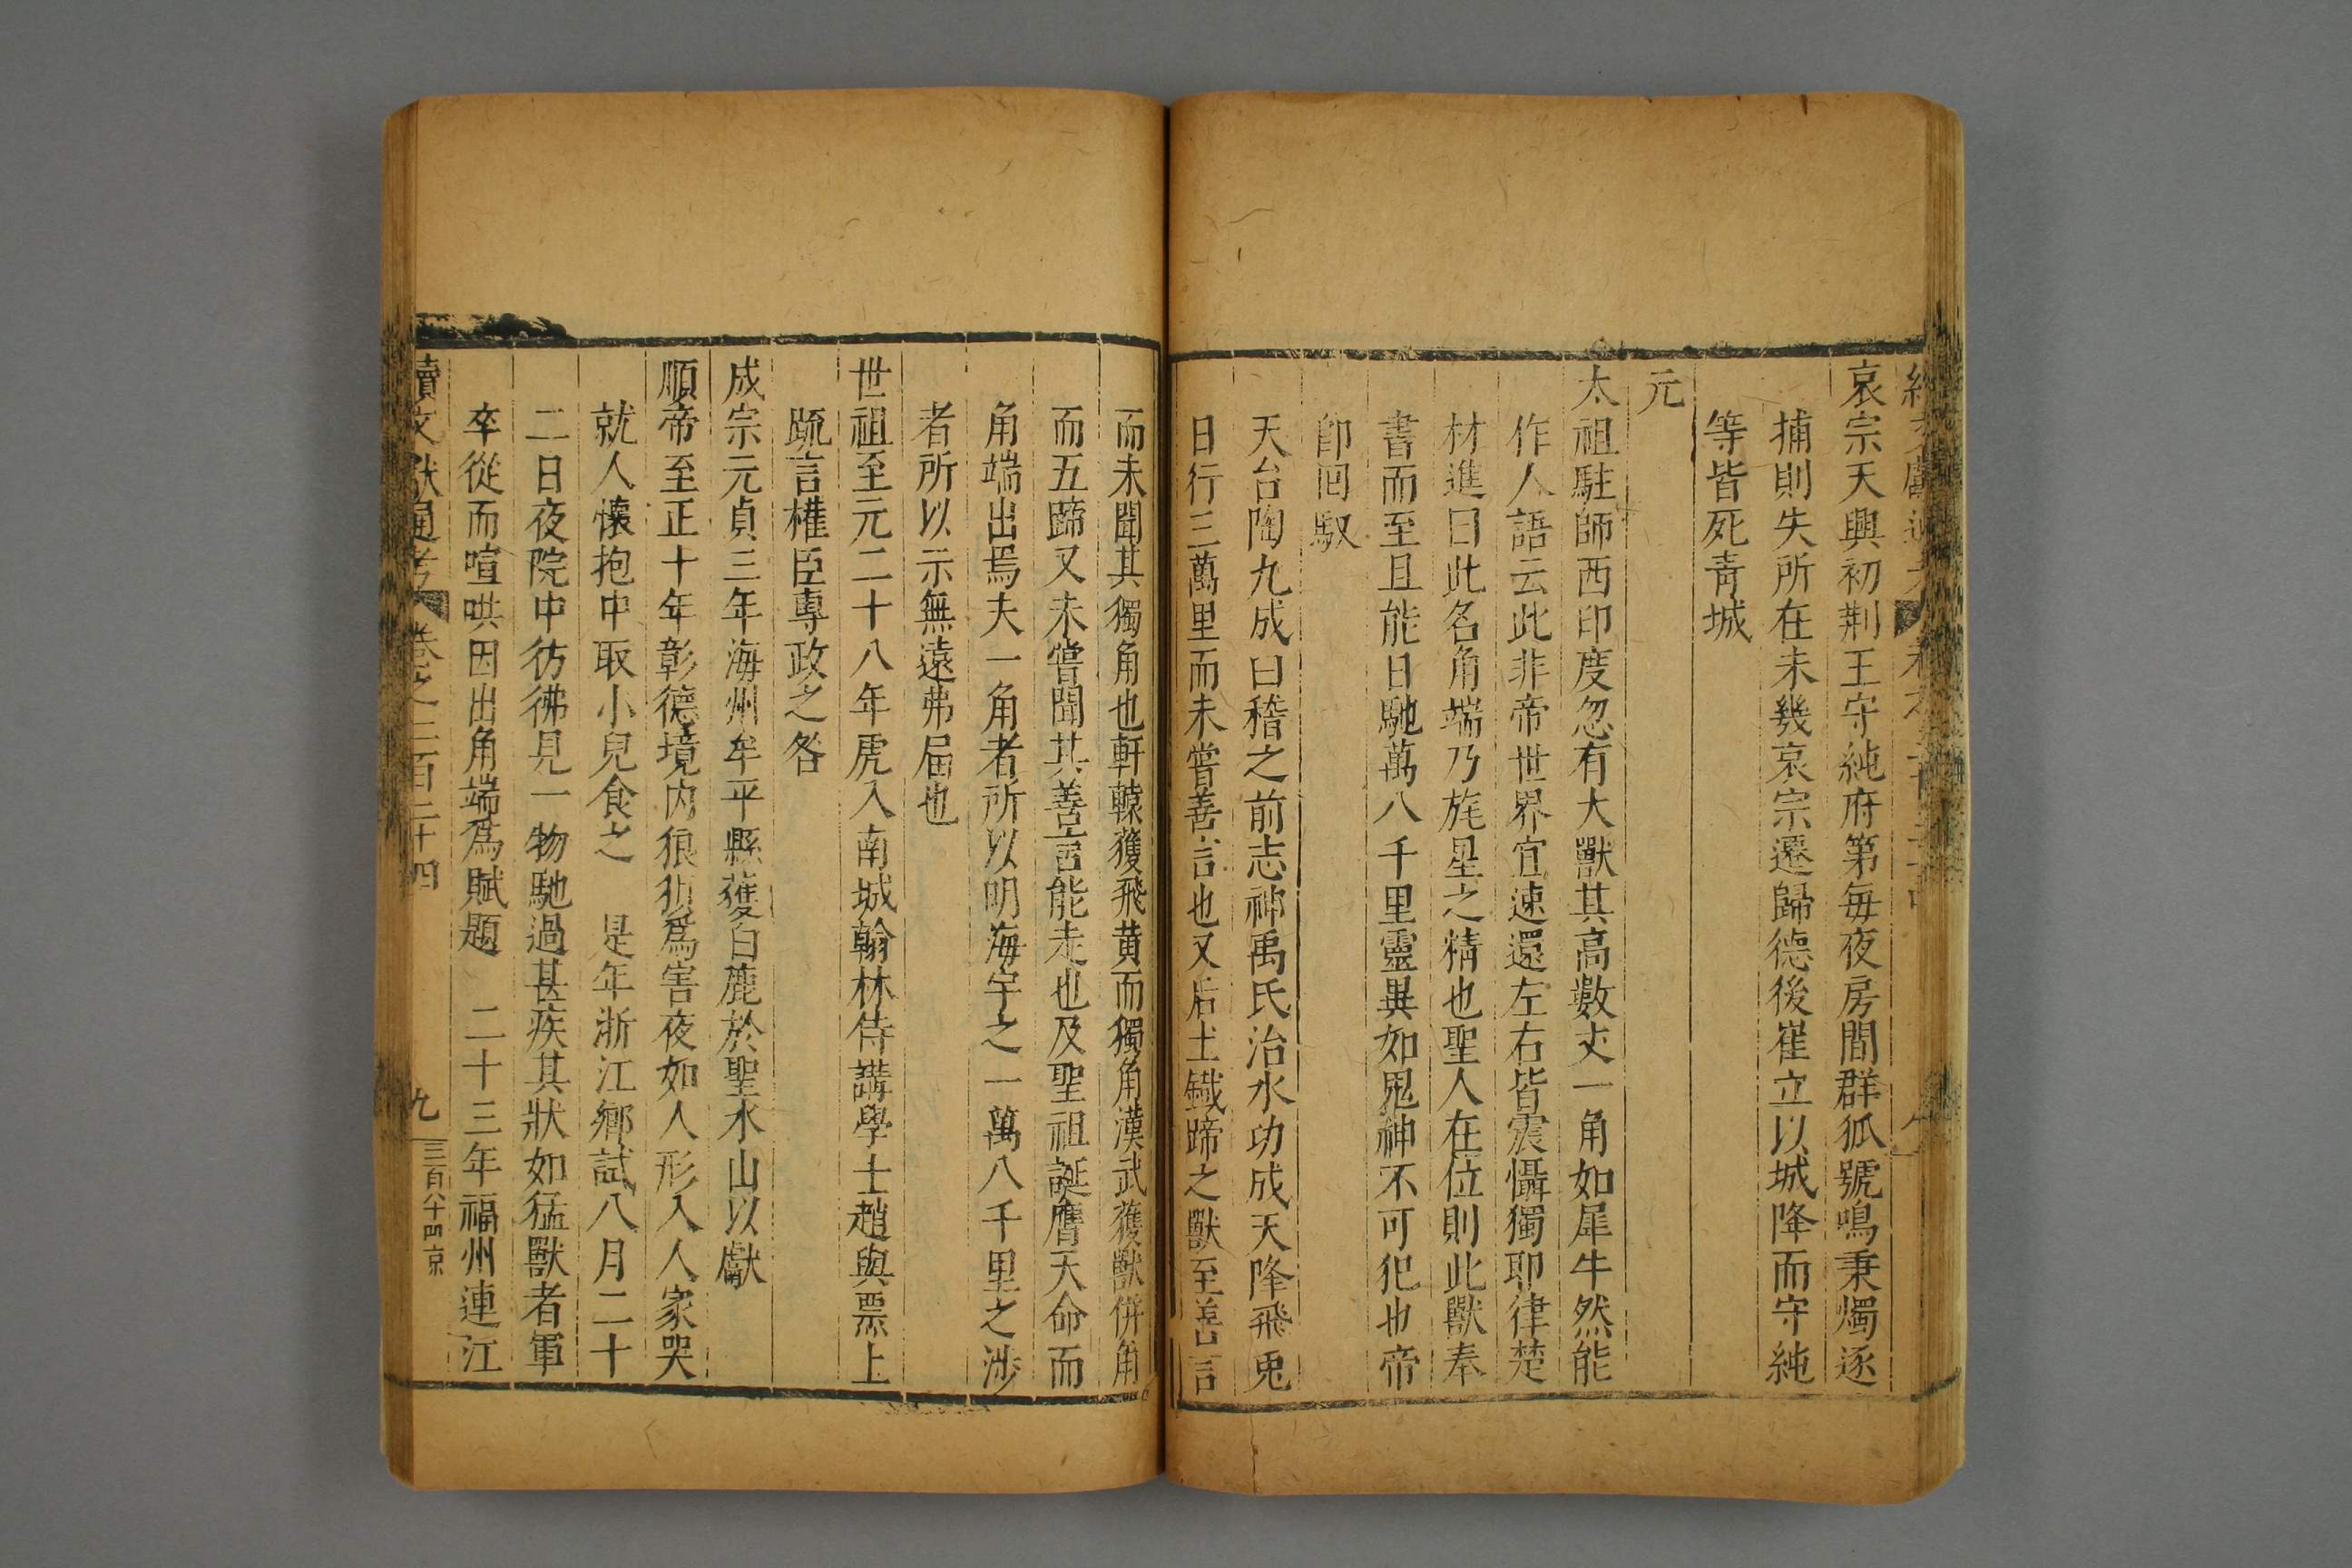 哀宗天興初荆王守純府第每夜房間群狐號鳴秉燭逐
捕則失所在未幾哀宗遷歸德後崔立以城降而守純
等皆死青城
元
太祖駐師西印度忽有大獸其高數丈一角如犀牛然能
作人語云此非帝世界宜速還左右皆震懾獨耶律楚
材進曰此名角端乃旄星之精也聖人在位則此獸奉
書而至且能日馳萬八千里靈異如鬼神不可犯也帝
卽回馭
天台陶九成曰稽之前志神禹氏治水功成天降飛兎
日行三萬里而未嘗善言也又后土鐵蹄之獸至善言
而未聞其獨角也軒轅獲飛黄而獨角漢武獲獸併角
而五蹄又未嘗聞其善言能走也及聖祖誕膺天命而
角端出焉夫一角者所以明海宇之一萬八千里之涉
者所以示無遠弗届也
世祖至元二十八年虎入南城翰林侍講學士趙與票上
疏言權臣專政之咎
成宗元貞三年海州牟平縣獲白鹿於聖水山以獻
順帝至正十年彰德境内狼狽爲害夜如人形入人家哭
就人懷抱中取小兒食之 是年浙江鄉試八月二十
二日夜院中彷彿見一物馳過甚疾其狀如猛獸者軍
卒從而喧哄因出角端爲賦題 二十三年福州連江
續文獻通考 卷之二百二十四 九 三百八十四 京